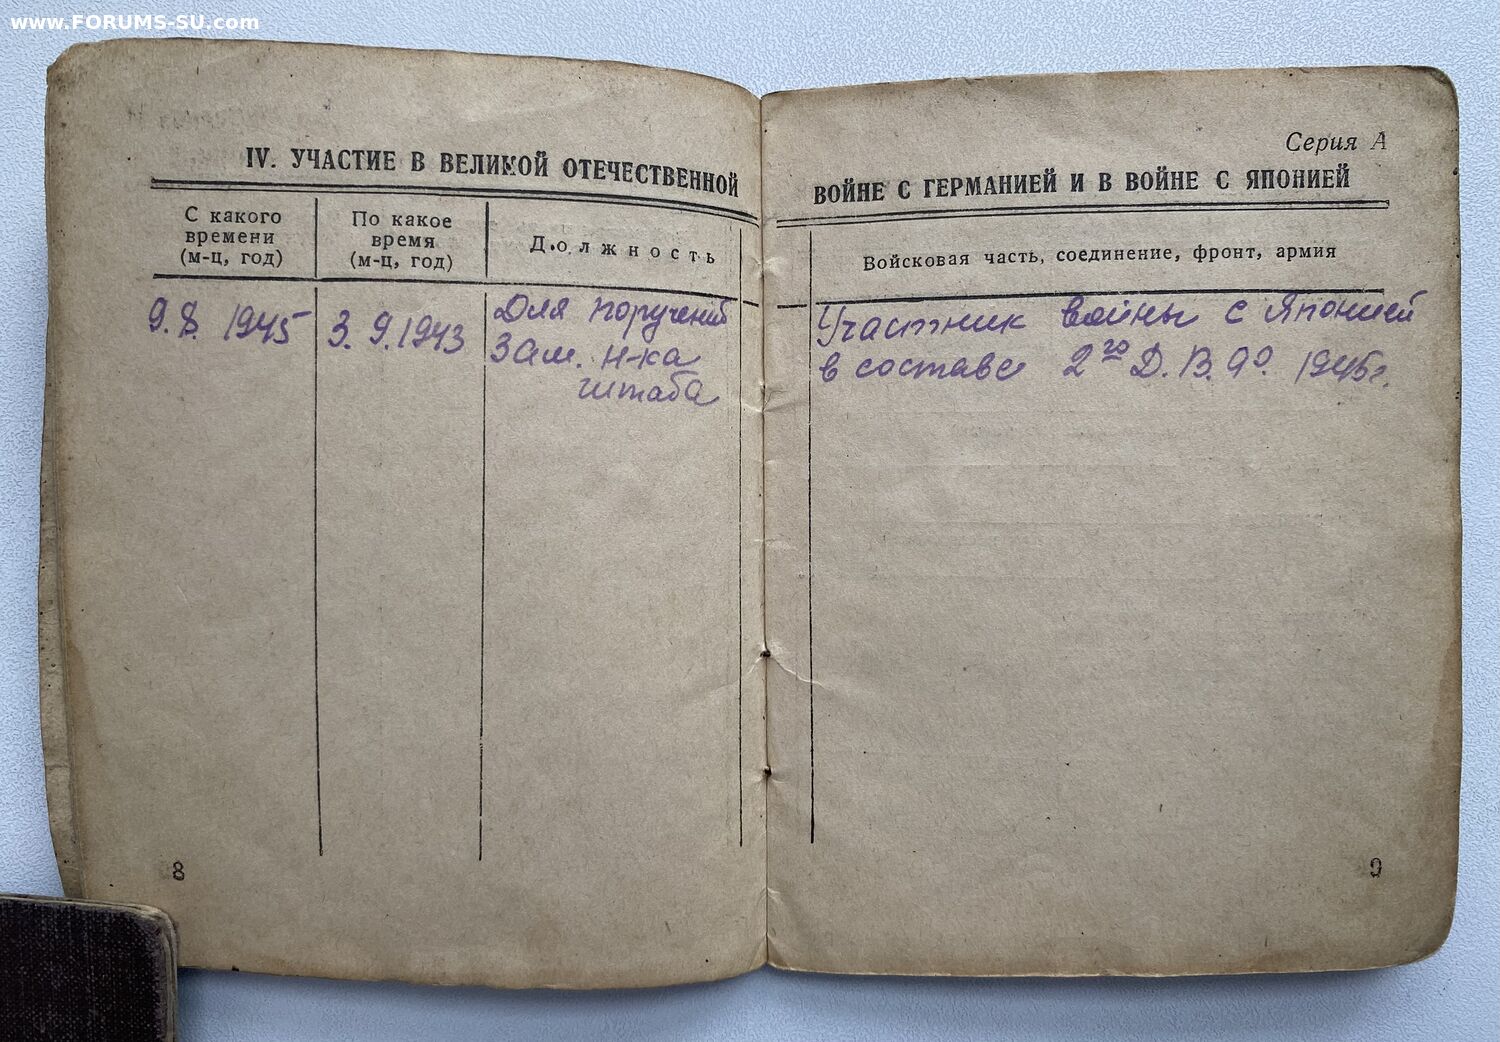 www.FORUMS-SU.com
Серия А
IV. УЧАСТИЕ В ВЕЛИКОЙ ОТЕЧЕСТВЕННОЙ ВОЙНЕ С ГЕРМАНИЕЙ И В ВОЙНЕ С ЯПОНИЕЙ
С какого
времени
(м-ц, год)
По какое
время
(м-ц, год)
Должность
Войсковая часть, соединение, фронт, армия
9.8. 1945
3. 9. 1943
Для поручений
Зам. н-ка
штаба
Участник войны с Японией
в составе 2го Д.В.Ф. 1945г.
8
9